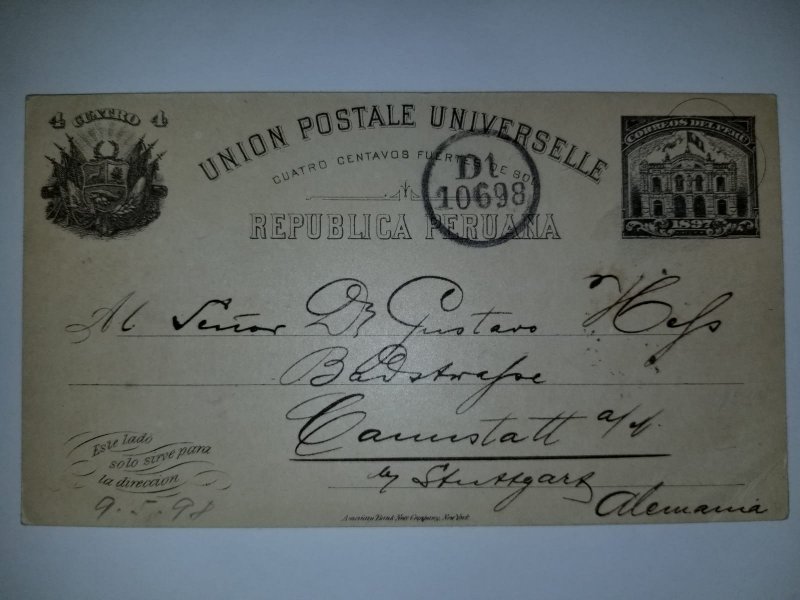 4 CUATRO 4
UNION POSTALE UNIVERSELLE
CORREOS DEL PERU
CUATRO CENTAVOS FUERT E SO
Dt
10698
REPUBLICA PERUANA
1897
Al Señor Dr Gustavo Heſs
Badstraſse
Cannstatt a/N.
by Stuttgart
Alemania
Este lado
solo sirve para
la direccion
9.5.98
American Bank Note Company, New York